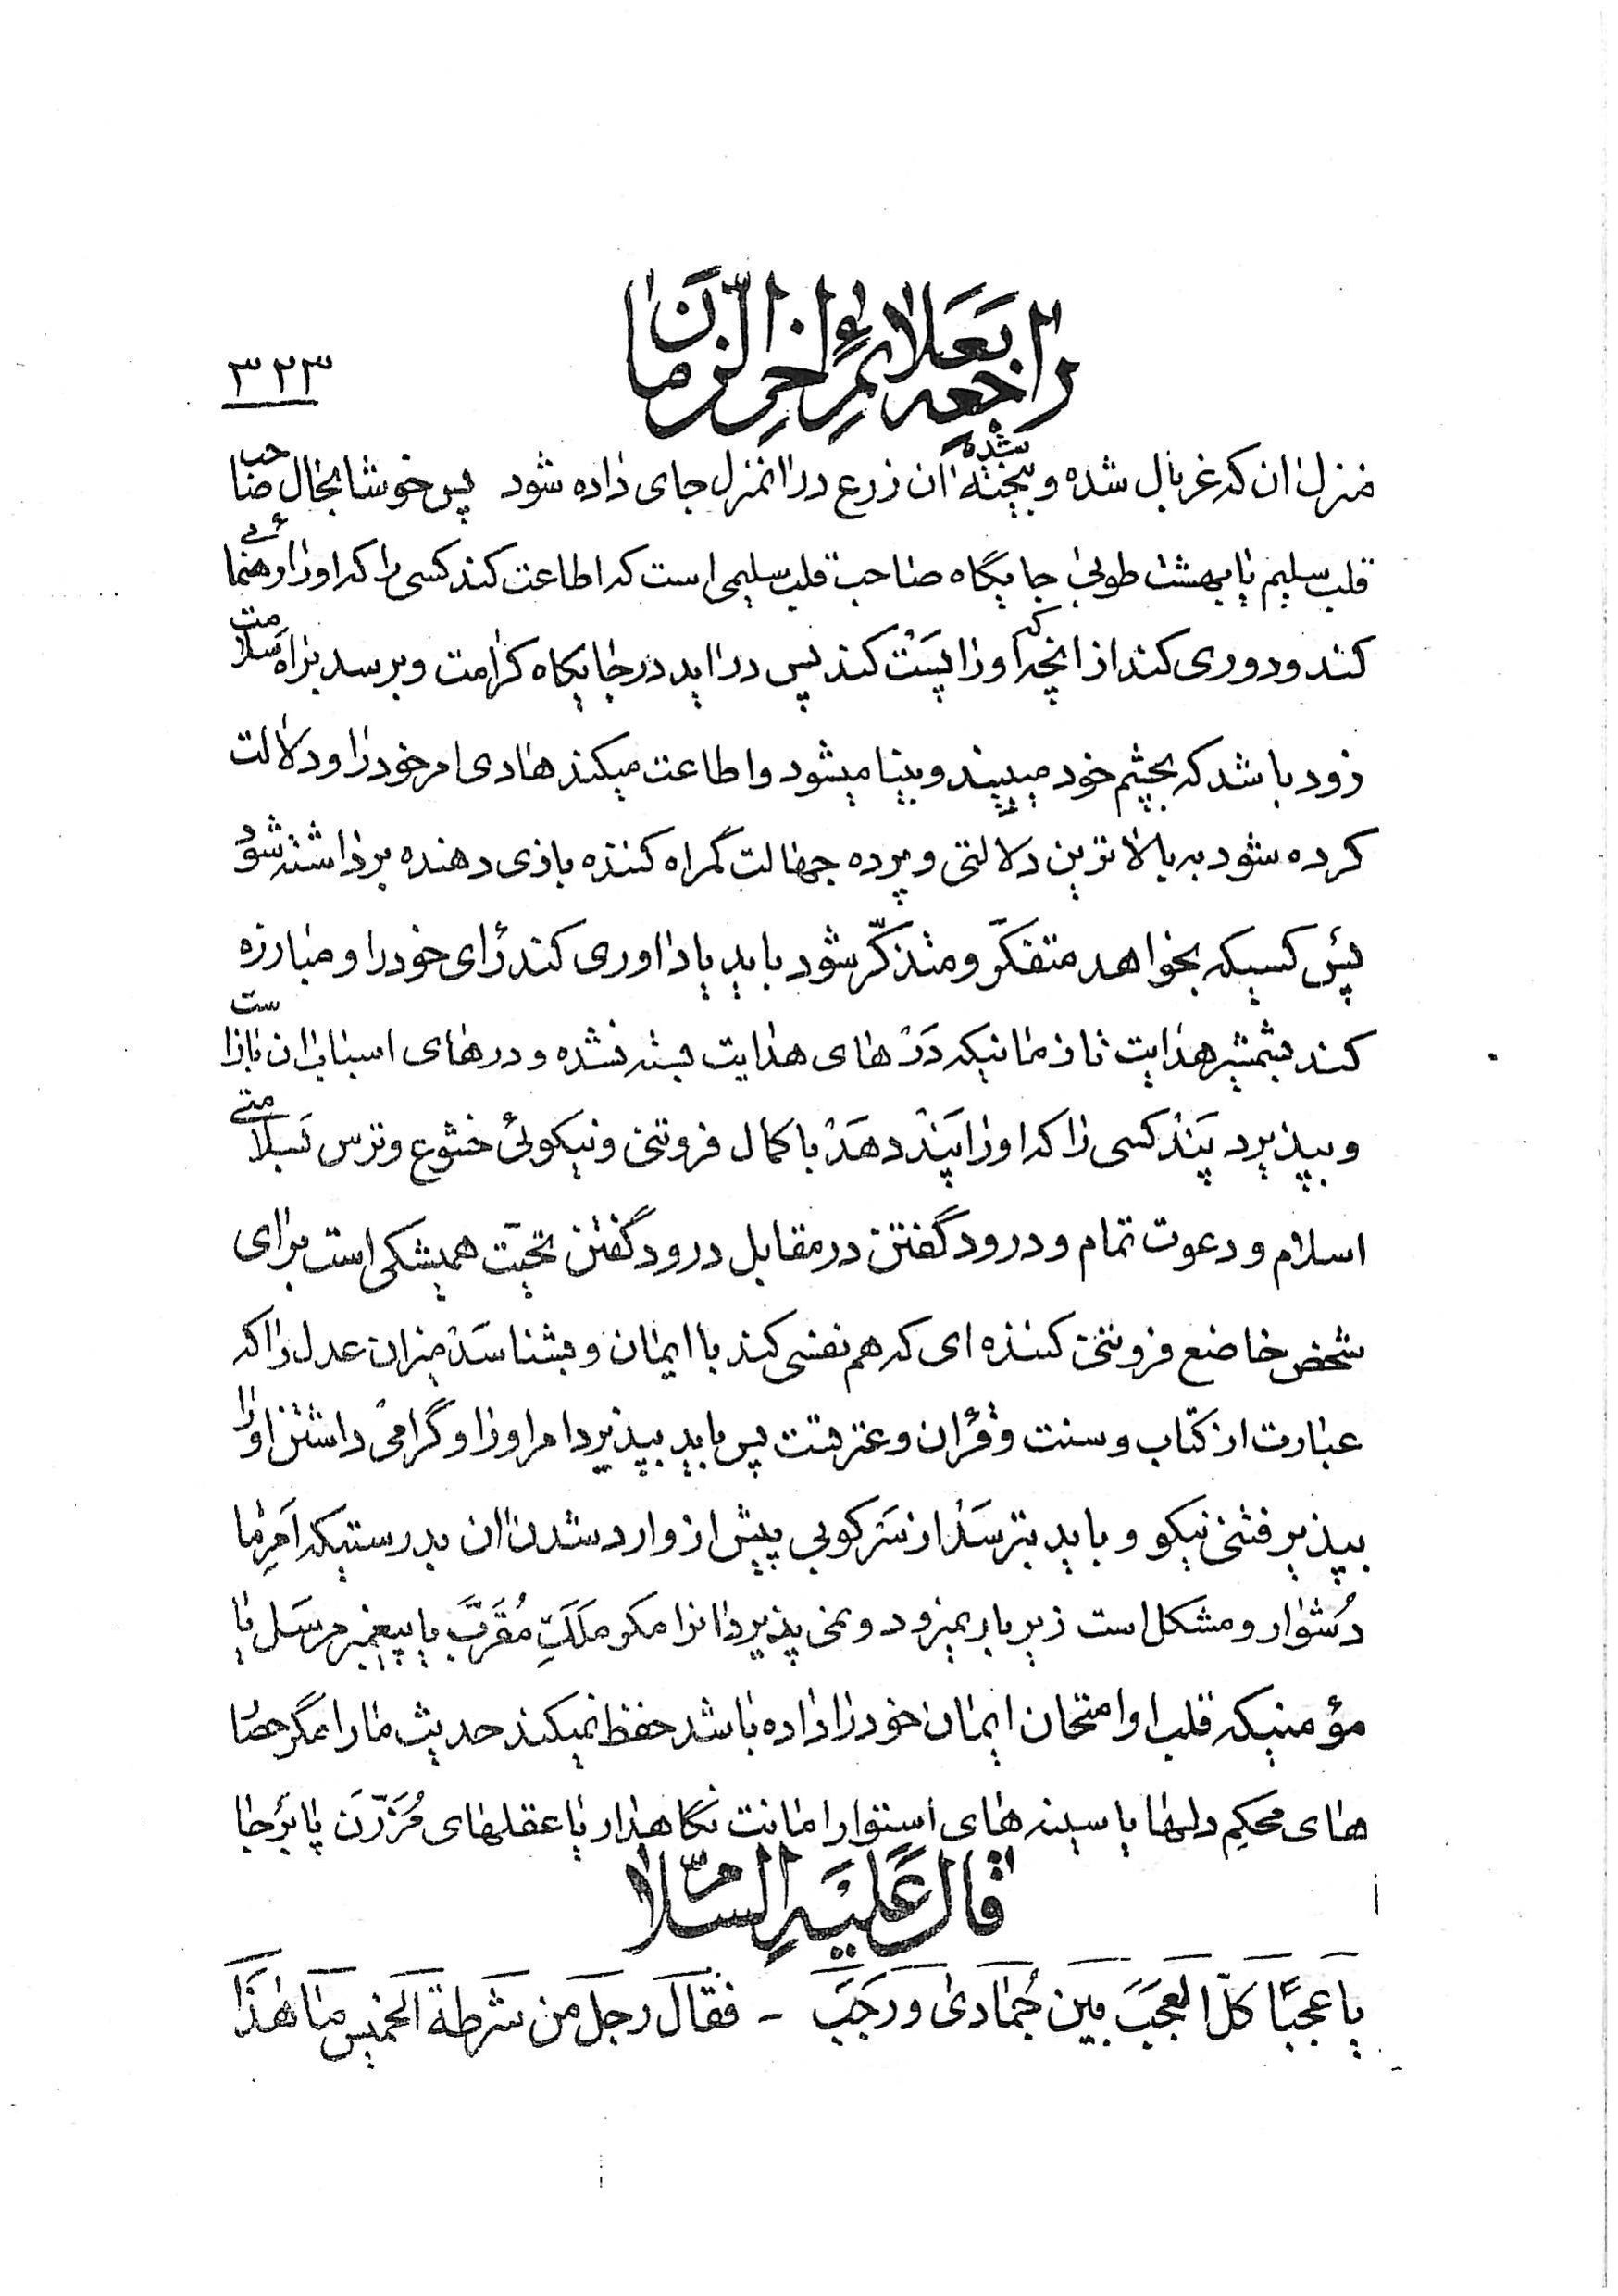 راجعه بعلائم آخر الزمان
۳۲۳
منزل ان که غربال شده و بیخته شده ان زرع در انمنزل جای داده شود پس خوشا بحال صاحب
قلب سلیم یا بهشت طوبی جایگاه صاحب قلب سلیمی است که اطاعت کند کسی را که او را رهنمائی
کند و دوری کند از انچه که او را پَسْت کند پس در اید در جایگاه کرامت و برسد براه سلامت
زود باشد که بچشم خود میبیند و بینا میشود و اطاعت میکند هادی امر خود را و دلالت
کرده شود به بالاترین دلالتی و پرده جهالت گمراه کننده بازی دهنده برداشته شود
پس کسیکه بخواهد متفکّر و متذکّر شود باید یاد اوری کند رأی خود را و مبارزه
کند بشمشیر هدایت تا زمانیکه دَرْهای هدایت بسته نشده و درهای اسباب ان باز است
و بپذیرد پَنْد کسی را که او را پَنْد دهَدْ با کمال فروتنی و نیکوئی خشوع و ترس بَسلامتی
اسلام و دعوت تمام و درود گفتن در مقابل درود گفتن تحیّت همیشگی است برای
شخص خاضع فروتنی کننده ای که هم نفسی کند با ایمان و بشناسَدْ میزان عدل را که
عبارت از کتاب و سنت و قرْان و عترتست پس باید بپذیرد امر او را و گرامی داشتن او را
بپذیرفتنی نیکو و باید بترسَدْ از سَرکوبی پیش از وارد شدن ان بدرستیکه اَمرِ ما
دُشوار و مشکل است زیر بار نمیرود و نمی پذیرد انرا مگر ملَکِ مُقَرَّب یا پیغمبر مرسَل یا
مؤمنیکه قلب او امتحان ایمان خود را داده باشد حفظ نمیکند حدیث ما را مگر حصا
های محکم دلها یا سینه های استوار امانت نگاهدار یا عقلهای مُرَزَّن پا بَرجا
قال علیه السّلام
یا عَجبًا کلّ العَجَبَ بَین جُمادی وَ رَجَبَ - فقالَ رجلَ مَن شَرطة الخمیس ما هٰذا